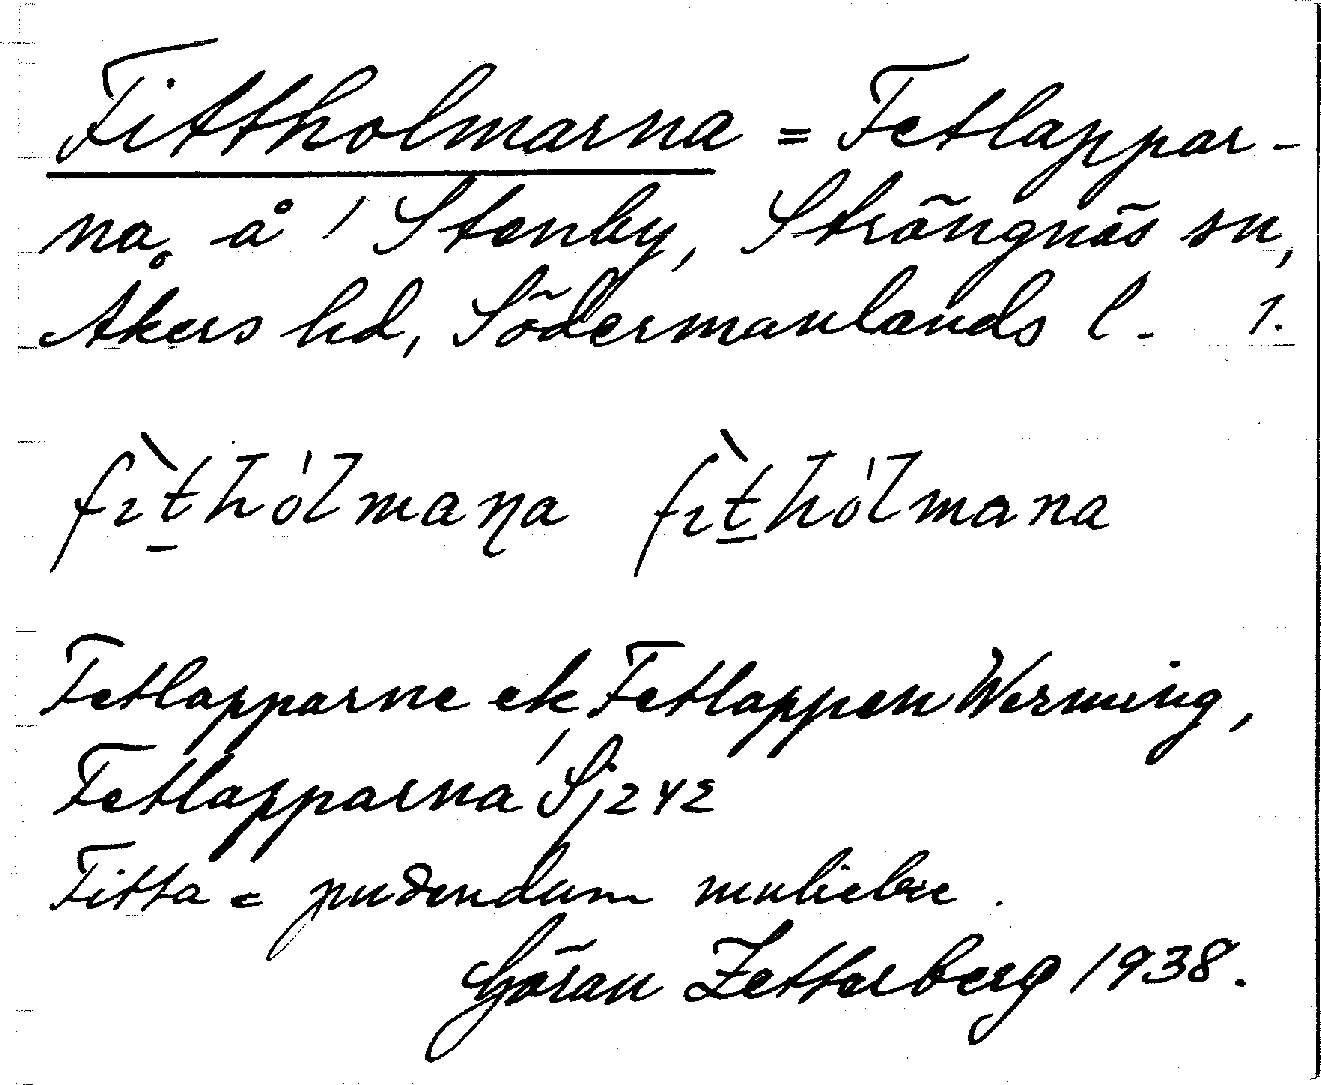 Fittholmarna = Fetlappar-
na å / Stenby, Strängnäs sn,
Åkers hd, Södermanlands l. 1.
fìt̠hólmaṇa fìt̠hólmana
Fetlapparne ek, Fetlappen Werming,
Fetlapparna Sj 242
Fitta = pudendum muliebre.
Göran Zetterberg 1938.